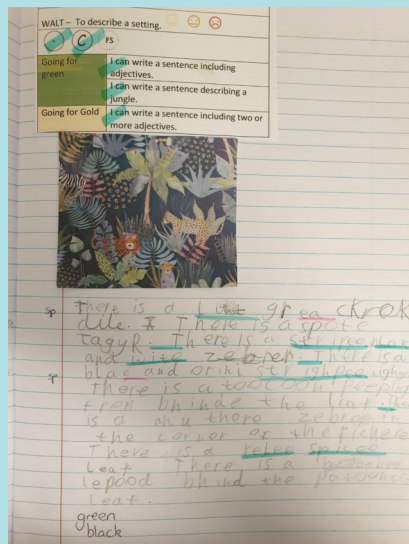 WALT – To describe a setting.
C FS
Going for green I can write a sentence including adjectives.
I can write a sentence describing a jungle.
Going for Gold I can write a sentence including two or more adjectives.
sp There is a grea ckrok
dile. There is a spote
tagyR. There is a
and wite zebrer. There is a
sp blac and orinj
There is a toocoon peeping
fron bhinde the leaf. The
is a there zebree in
the corner of the
There is a relee
leaf There is a
lepood bhind the
leaf.
green
black